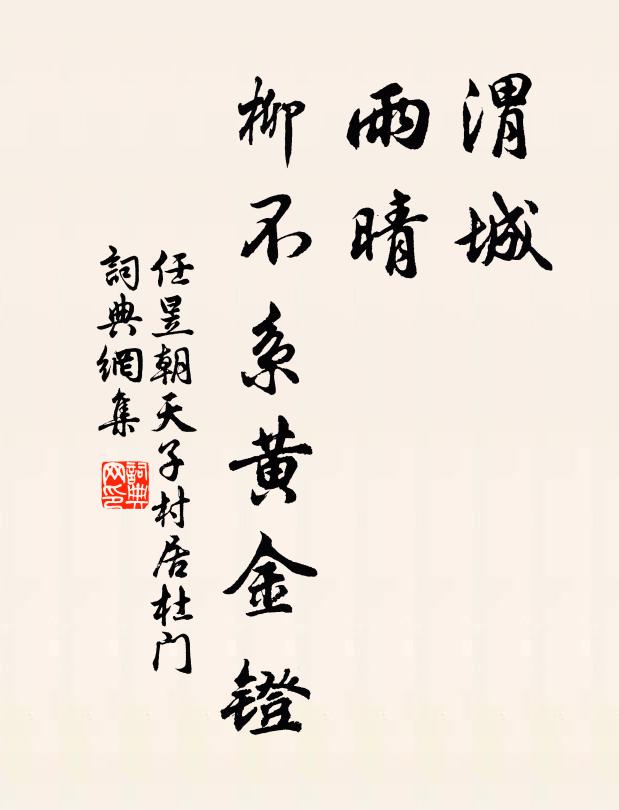 渭城
雨晴
柳不系黄金鐙
任昱朝天子村居杜门
詞典網集
詞典网印